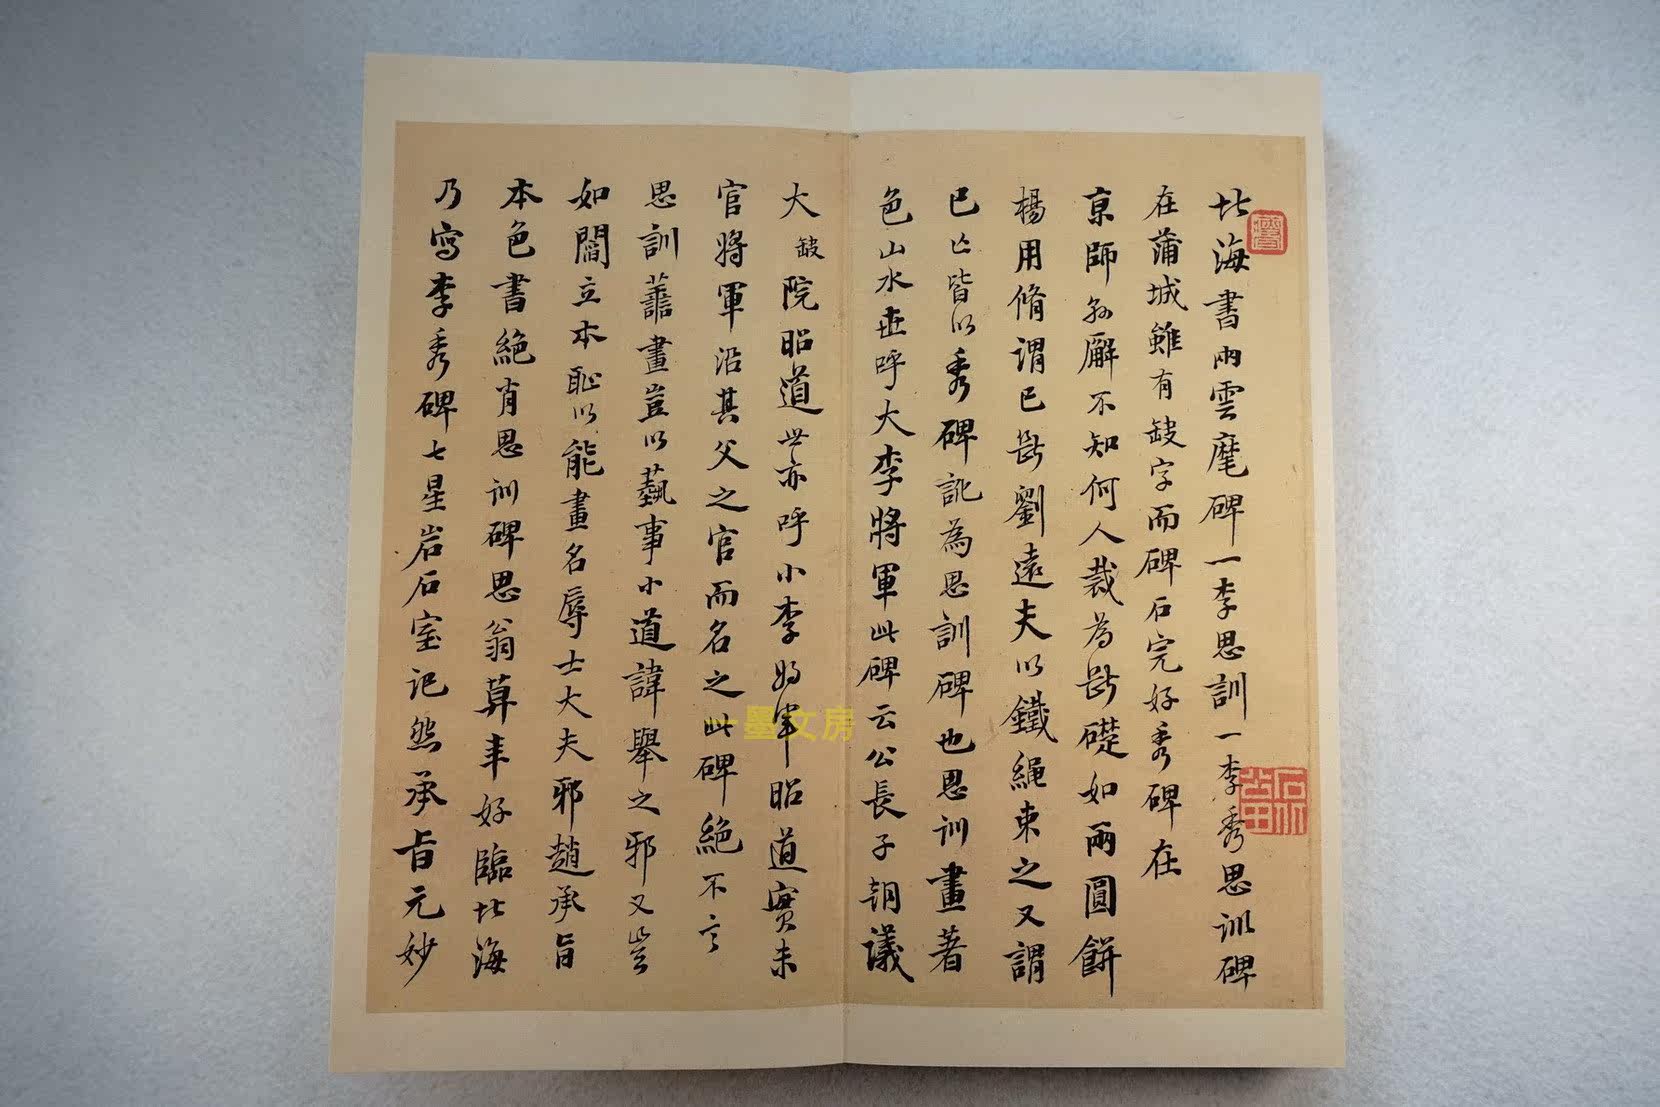 北海書兩雲麾碑一李思訓一李秀思訓碑
在蒲城雖有缺字而碑石完好秀碑在
京師 廨不知何人裁為斷礎如兩圓餅
楊用脩謂已斷劉遠夫以鐵繩束之又謂
已亡皆以秀碑訛為思訓碑也思訓畫著
色山水世呼大李將軍此碑云公長子朝議
大缺院昭道世亦呼小李將軍昭道實未
官將軍沿其父之官而名之此碑絕不言
思訓善畫豈以藝事小道諱舉之邪又豈
如閻立本恥以能畫名辱士大夫邪趙承旨
本色書絕肖思訓碑思翁算年好臨北海
乃寫李秀碑七星岩石室記然承旨元妙
一墨文房